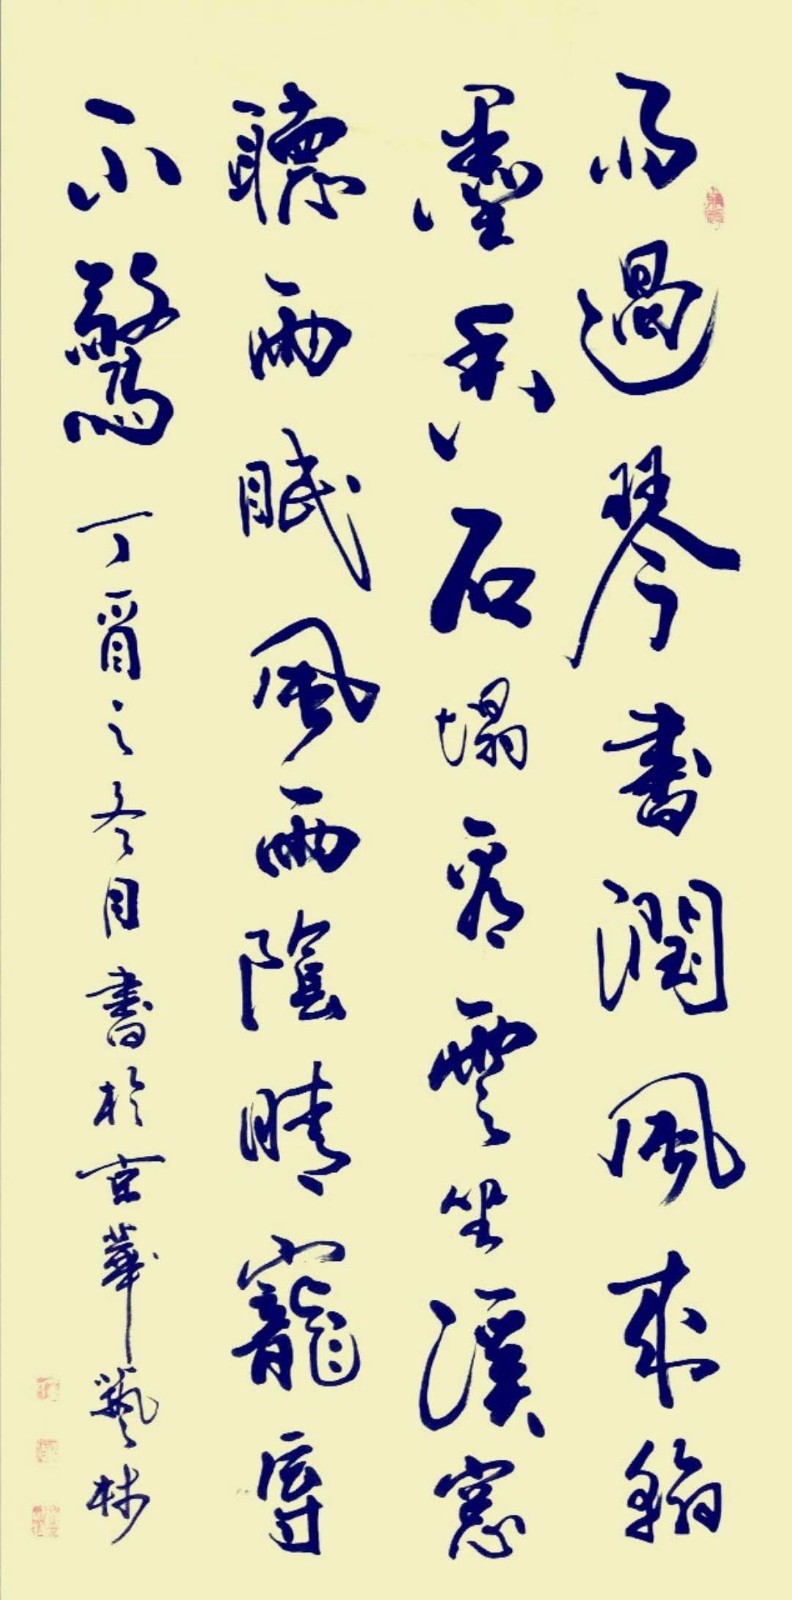 雨過琴書潤風來翰
墨香石塌看雲坐溪窓
聽雨眠風雨陰晴寵辱
不驚 丁酉之冬月書於京華藝林